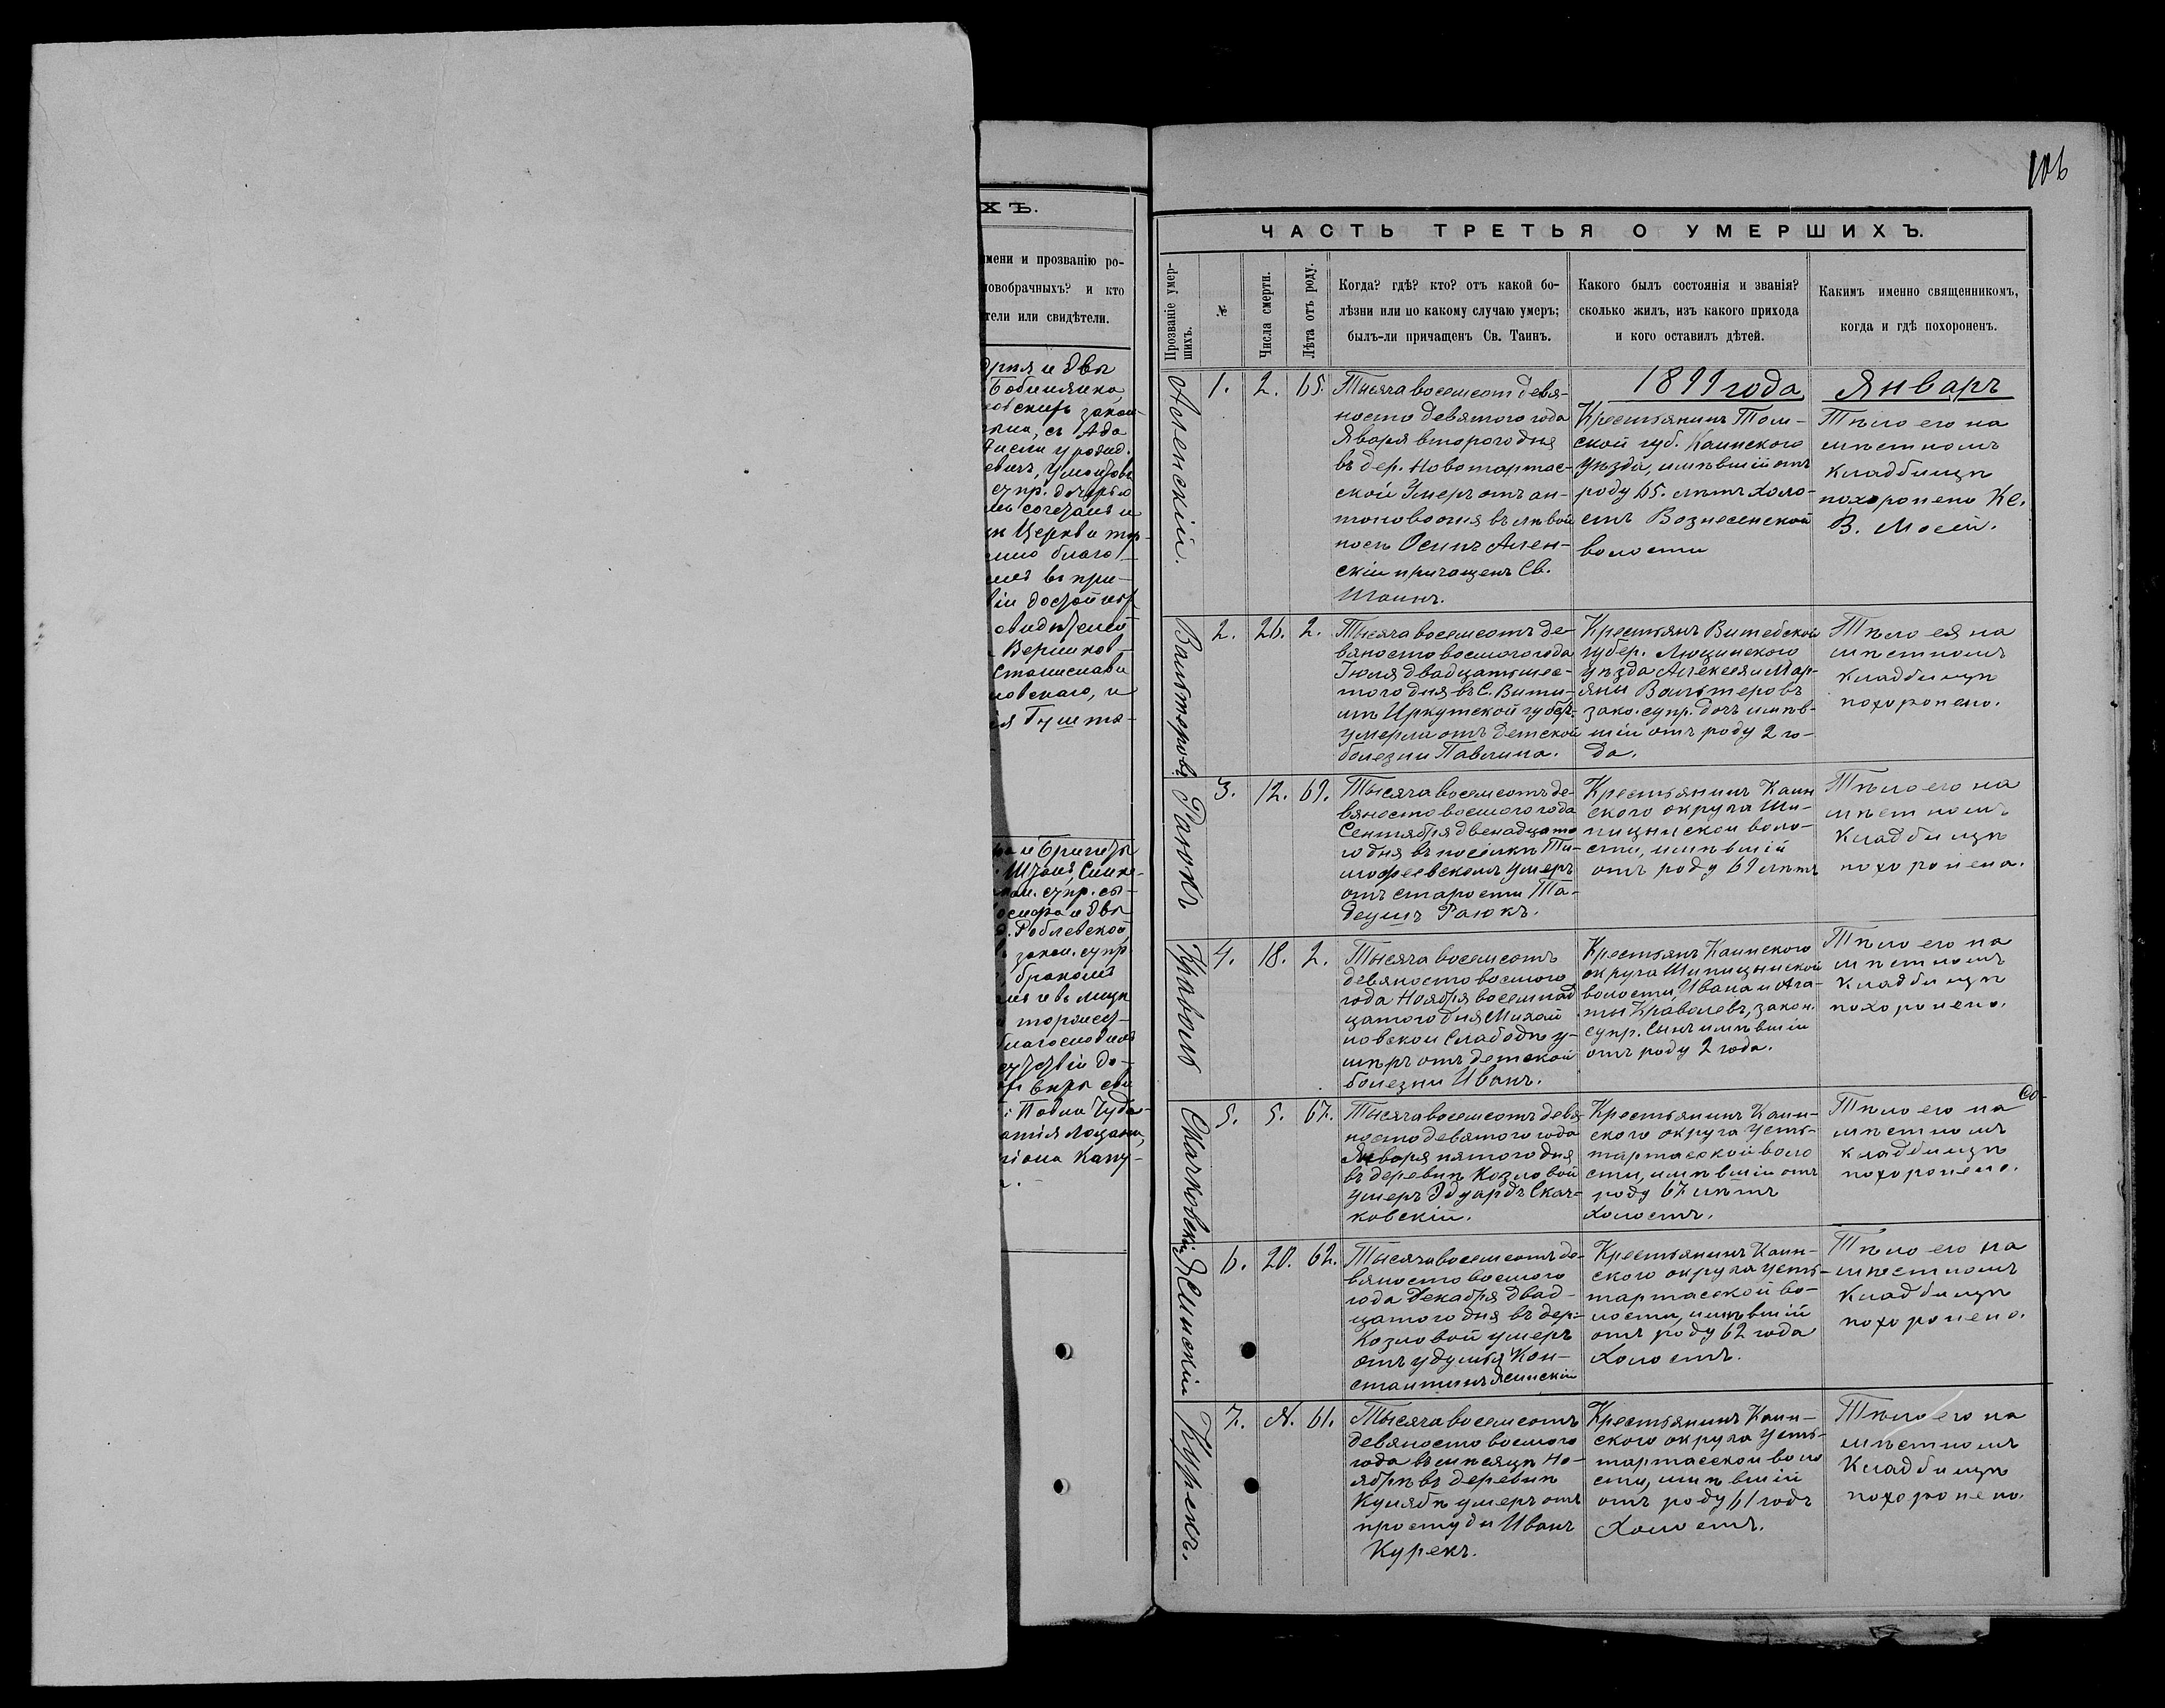 ХЪ.
мени и прозванію ро-
новобрачныхъ? и кто
тели или свидѣтели.
и Эвы
закон-
съ Ада
супр. дочерью
Церкви тор-
благо-
въ при-
Станислава
и
супр.
и Эвы
закон. супр.
торжест-
До-
Павла
106
ЧАСТЬ ТРЕТЬЯ О УМЕРШИХЪ.
Прозваніе умер-
шихъ.
№
Числа смерти.
Лѣта отъ роду.
Когда? гдѣ? кто? отъ какой бо-
лѣзни или по какому случаю умеръ;
былъ-ли причащенъ Св. Таинъ.
Какого былъ состоянія и званія?
сколько жилъ, изъ какого прихода
и кого оставилъ дѣтей.
Какимъ именно священникомъ,
когда и гдѣ похороненъ.
Аленскій.
1.
2.
65.
Тысяча восемсот девя-
носто девятого года
Яваря второго дня
въ дер. Новотартас-
ской Умеръ отъ ан-
тоновоогня въ лѣвой
ногѣ Осипъ Ален-
скій причащенъ Св.
Таинъ.
1899 года
Крестьянинъ Том-
ской губ. Каинского
Уѣзда, имѣвшій отъ
роду 65. лѣтъ холо-
стъ Вознесенской
волости
Январъ
Тѣло его на
мѣстномъ
кладбищѣ
похоронено Кс.
В. Мосей.
Вальтеровъ
2.
26.
2.
Тысяча восемсотъ де-
вяносто восмого года
Іюля двадцатьшес-
того дня въ С. Вити-
мѣ Иркутской губер.
умерла отъ детской
болезни Павлина.
Крестьянъ Витебской
губер. Люцинского
уѣзда Алексея и Мар-
яны Вальтеровъ
зако. супр. дочъ имѣв-
шій отъ роду 2 го-
да.
Тѣло ея на
мѣстномъ
кладбищѣ
похоронено.
Раюкъ
3.
12.
69.
Тысяча восемсотъ де-
вяносто восмого года
Сентября двенадцато
го дня въ посёлкѣ Ти-
мофеевскомъ умеръ
отъ старости Та-
деушъ Раюкъ.
Крестьянинъ Каин
ского округа Ши-
пицынской воло-
сти, имѣвшій
отъ роду 69 лѣтъ
Тѣло его на
мѣстномъ
кладбищѣ
похоронена.
Краволь
4.
18.
2.
Тысяча восемсотъ
девяносто восмого
года Ноября восемнад
цатого дня Михай
ловской Слабодѣ у-
мѣръ отъ детской
болезни Иванъ.
Крестьянъ Каинского
округа Шипицынской
волости, Ивана и Ага-
ты Краволевъ, закон.
супр. Сынъ имѣвшій
отъ роду 2 года.
Тѣло его на
мѣстномъ
кладбищѣ
похоронено.
Скачковскій
5.
5.
67.
Тысяча восемсотъ девя
носто девятого года
Января пятого дня
въ деревнѣ Козловой
умеръ Эдуардъ Скач-
ковскій.
Крестьянинъ Каин-
ского округа Усть-
тартасской воло
сти, имѣвшій отъ
роду 67 лѣтъ
Холостъ.
Тѣло его на
мѣстномъ
кладбищѣ
похоронено.
Ясинскій
6.
20.
62.
Тысяча восемсотъ де-
вяносто восмого
года Декабря двад-
цатого дня въ дер.
Козловой умеръ
отъ удушья Кон-
стантинъ Ясинскій
Крестьянинъ Каин-
ского округа Усть-
тартасской во-
лости, имѣвшій
отъ роду 62 года
Холостъ.
Тѣло его на
мѣстномъ
кладбищѣ
похоронено.
Курекъ.
7.
N.
61.
Тысяча восемсотъ
девяносто восмого
года въ мѣсяцѣ Но-
ябрѣ въ деревнѣ
Кулябѣ умеръ отъ
простуды Иванъ
Курекъ.
Крестьянинъ Каин-
ского округа Усть-
тартасской воло
сти, имѣвшій
отъ роду 61 годъ
Холостъ.
Тѣло его на
мѣстномъ
кладбищѣ
похоронено.